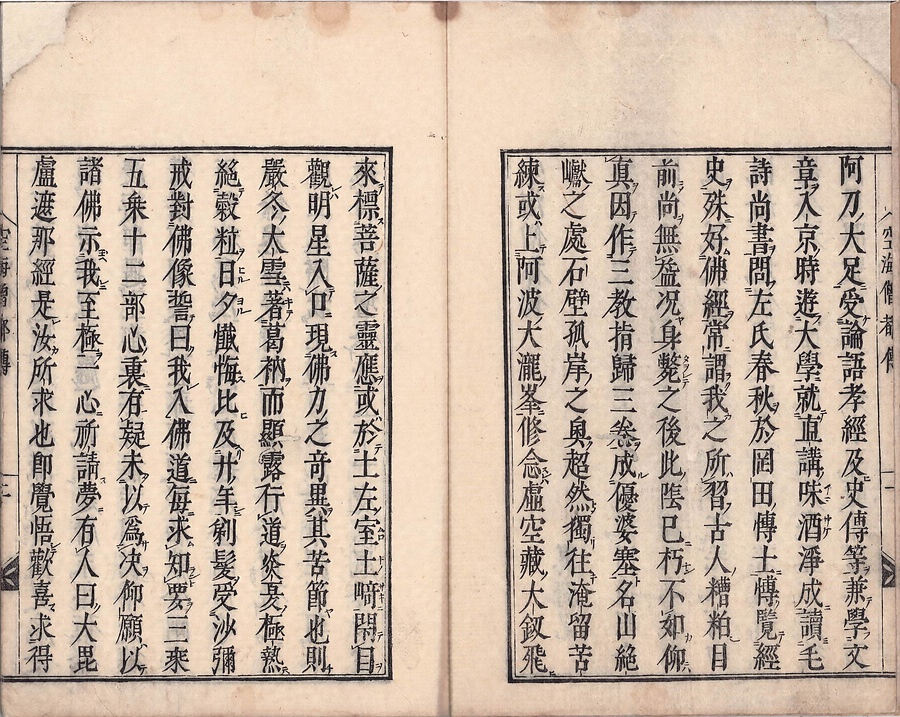 阿刀大足受論語孝經及史傳等兼學文
章入京時遊大學就直講味酒淨成讀毛
詩尚書問左氏春秋於岡田博士博覽經
史殊好佛經常謂我之所習古人糟粕目
前尚無益况身斃之後此陰已朽不如仰
真因作三教指歸三卷成優婆塞名山絕
巘之處石壁孤岸之奥超然獨往淹留苦
練或上阿波大瀧峯修念虛空藏大釼飛
來標菩薩之靈應或於土左室土﨑閇目
觀明星入口現佛力之奇異其苦節也則
嚴冬太雪著葛衲而顯露行道炎夏極熱
絕穀粒日夕懺悔比及廿年剃髮受沙彌
戒對佛像誓曰我入佛道每求知要三乘
五乘十二部心裏有疑未以爲决仰願以
諸佛示我至極二心祈請夢有人曰大毘
盧遮那經是汝所求也卽覺悟歡喜求得
空海僧都傳